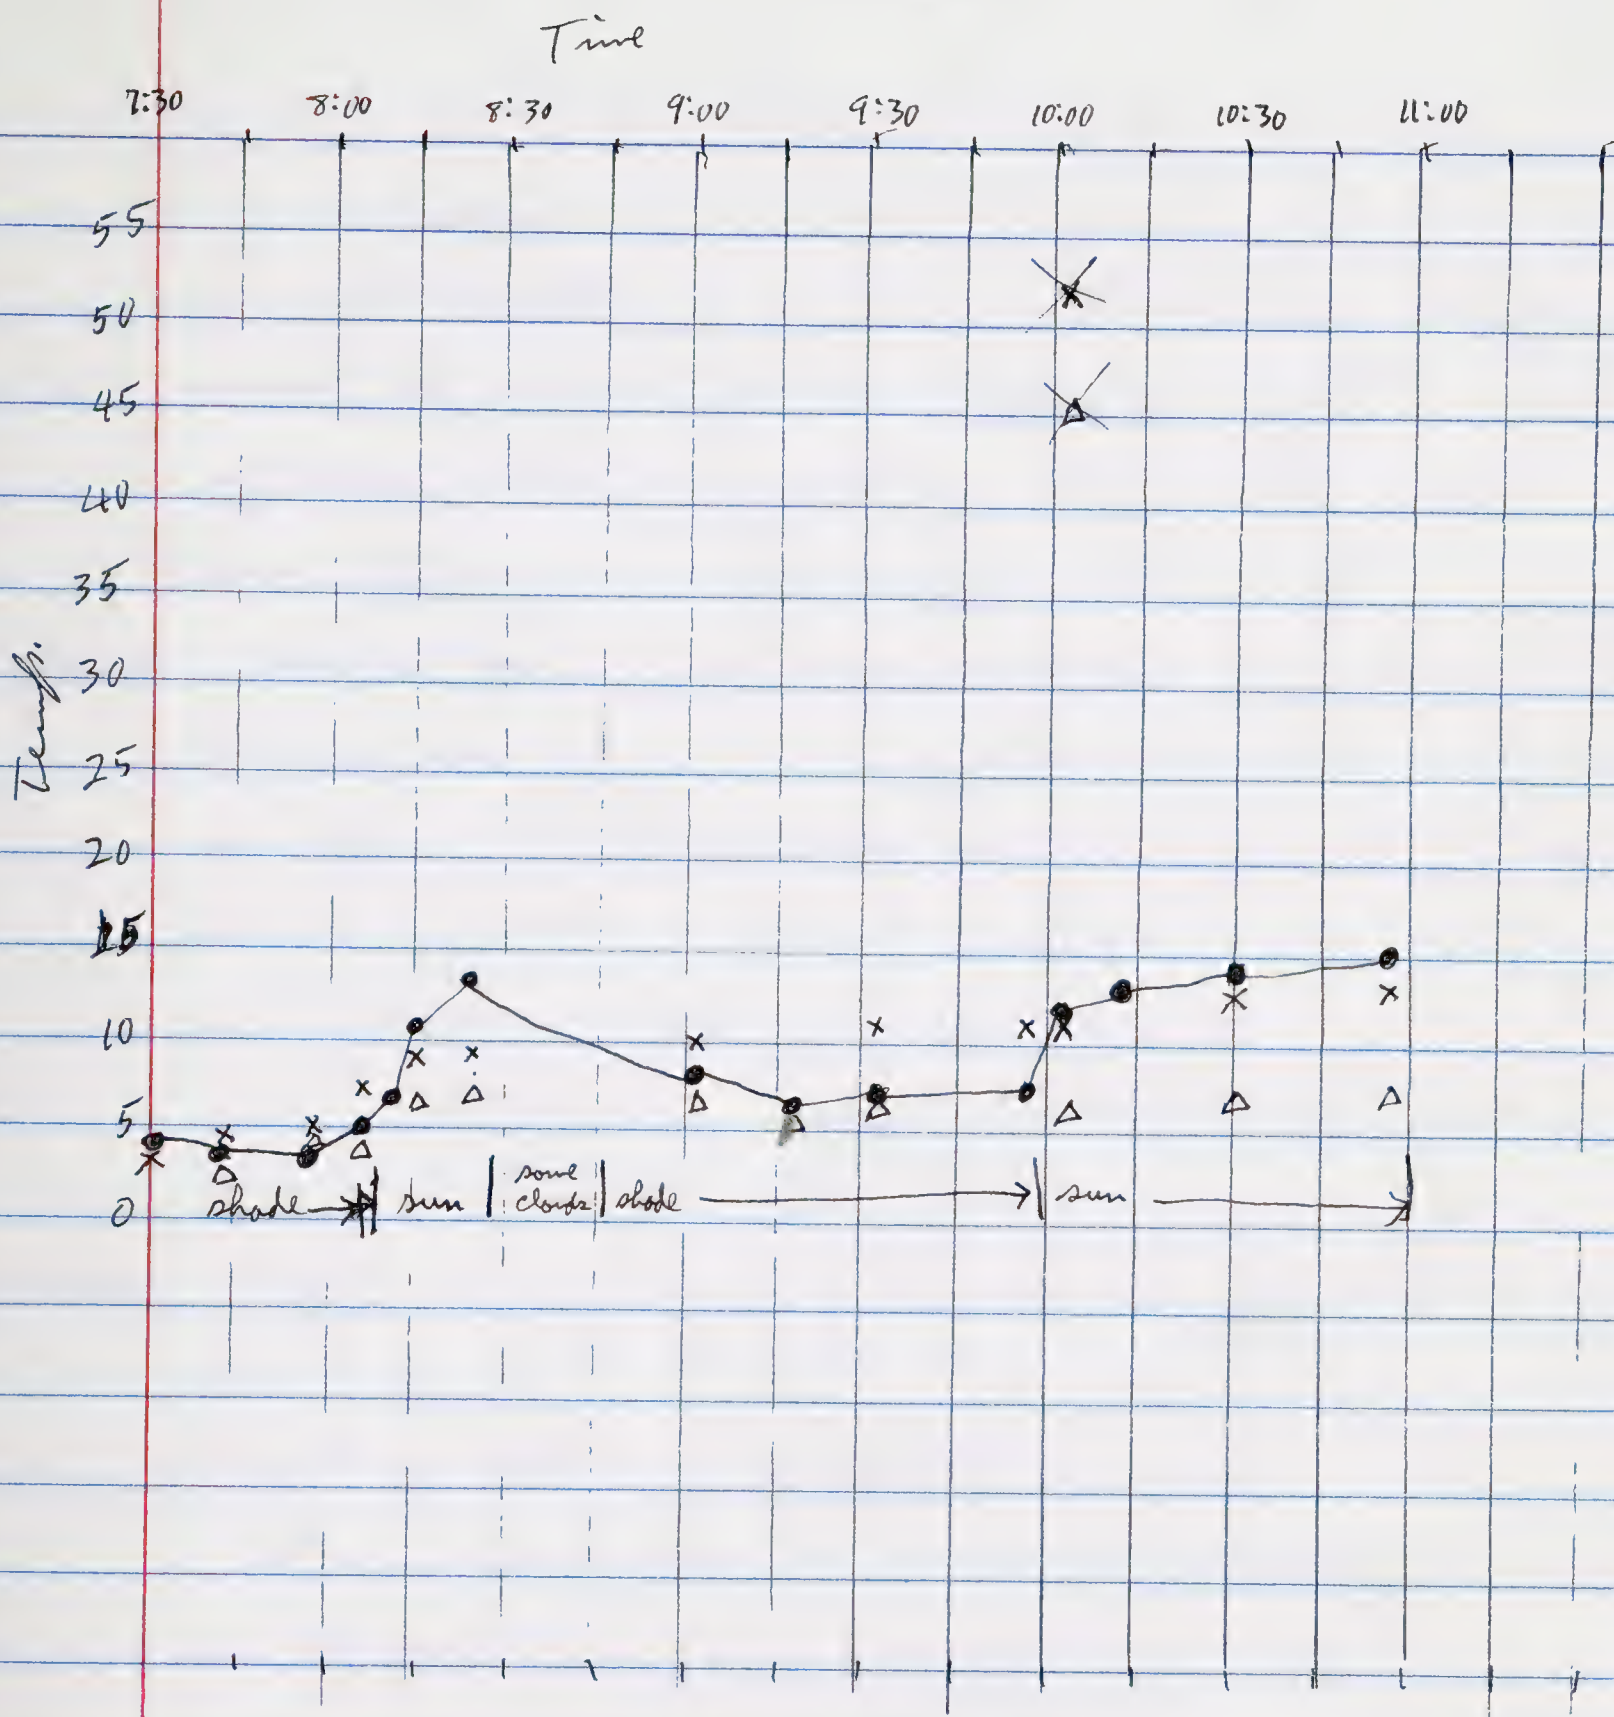 Time
7:30 8:00 8:30 9:00 9:30 10:00 10:30 11:00
55
50
45
40
35
30
Temp.
25
20
15
10
5
some
shade sun clouds shade sun
0